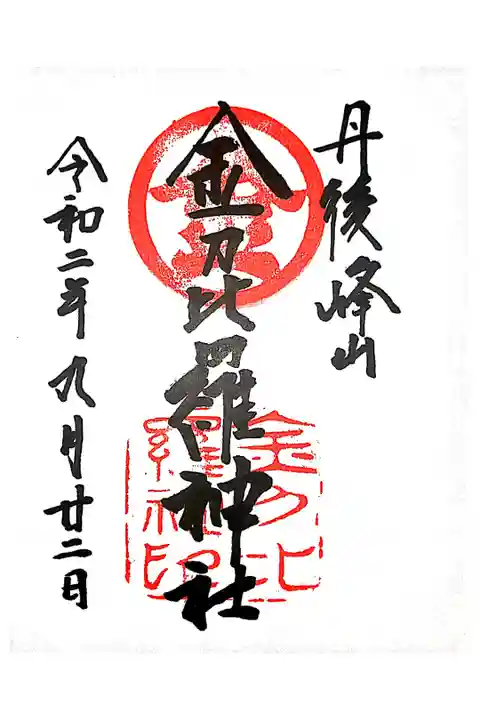 丹後峰山
金刀比羅神社
令和二年九月廿二日
金
金刀比羅社印